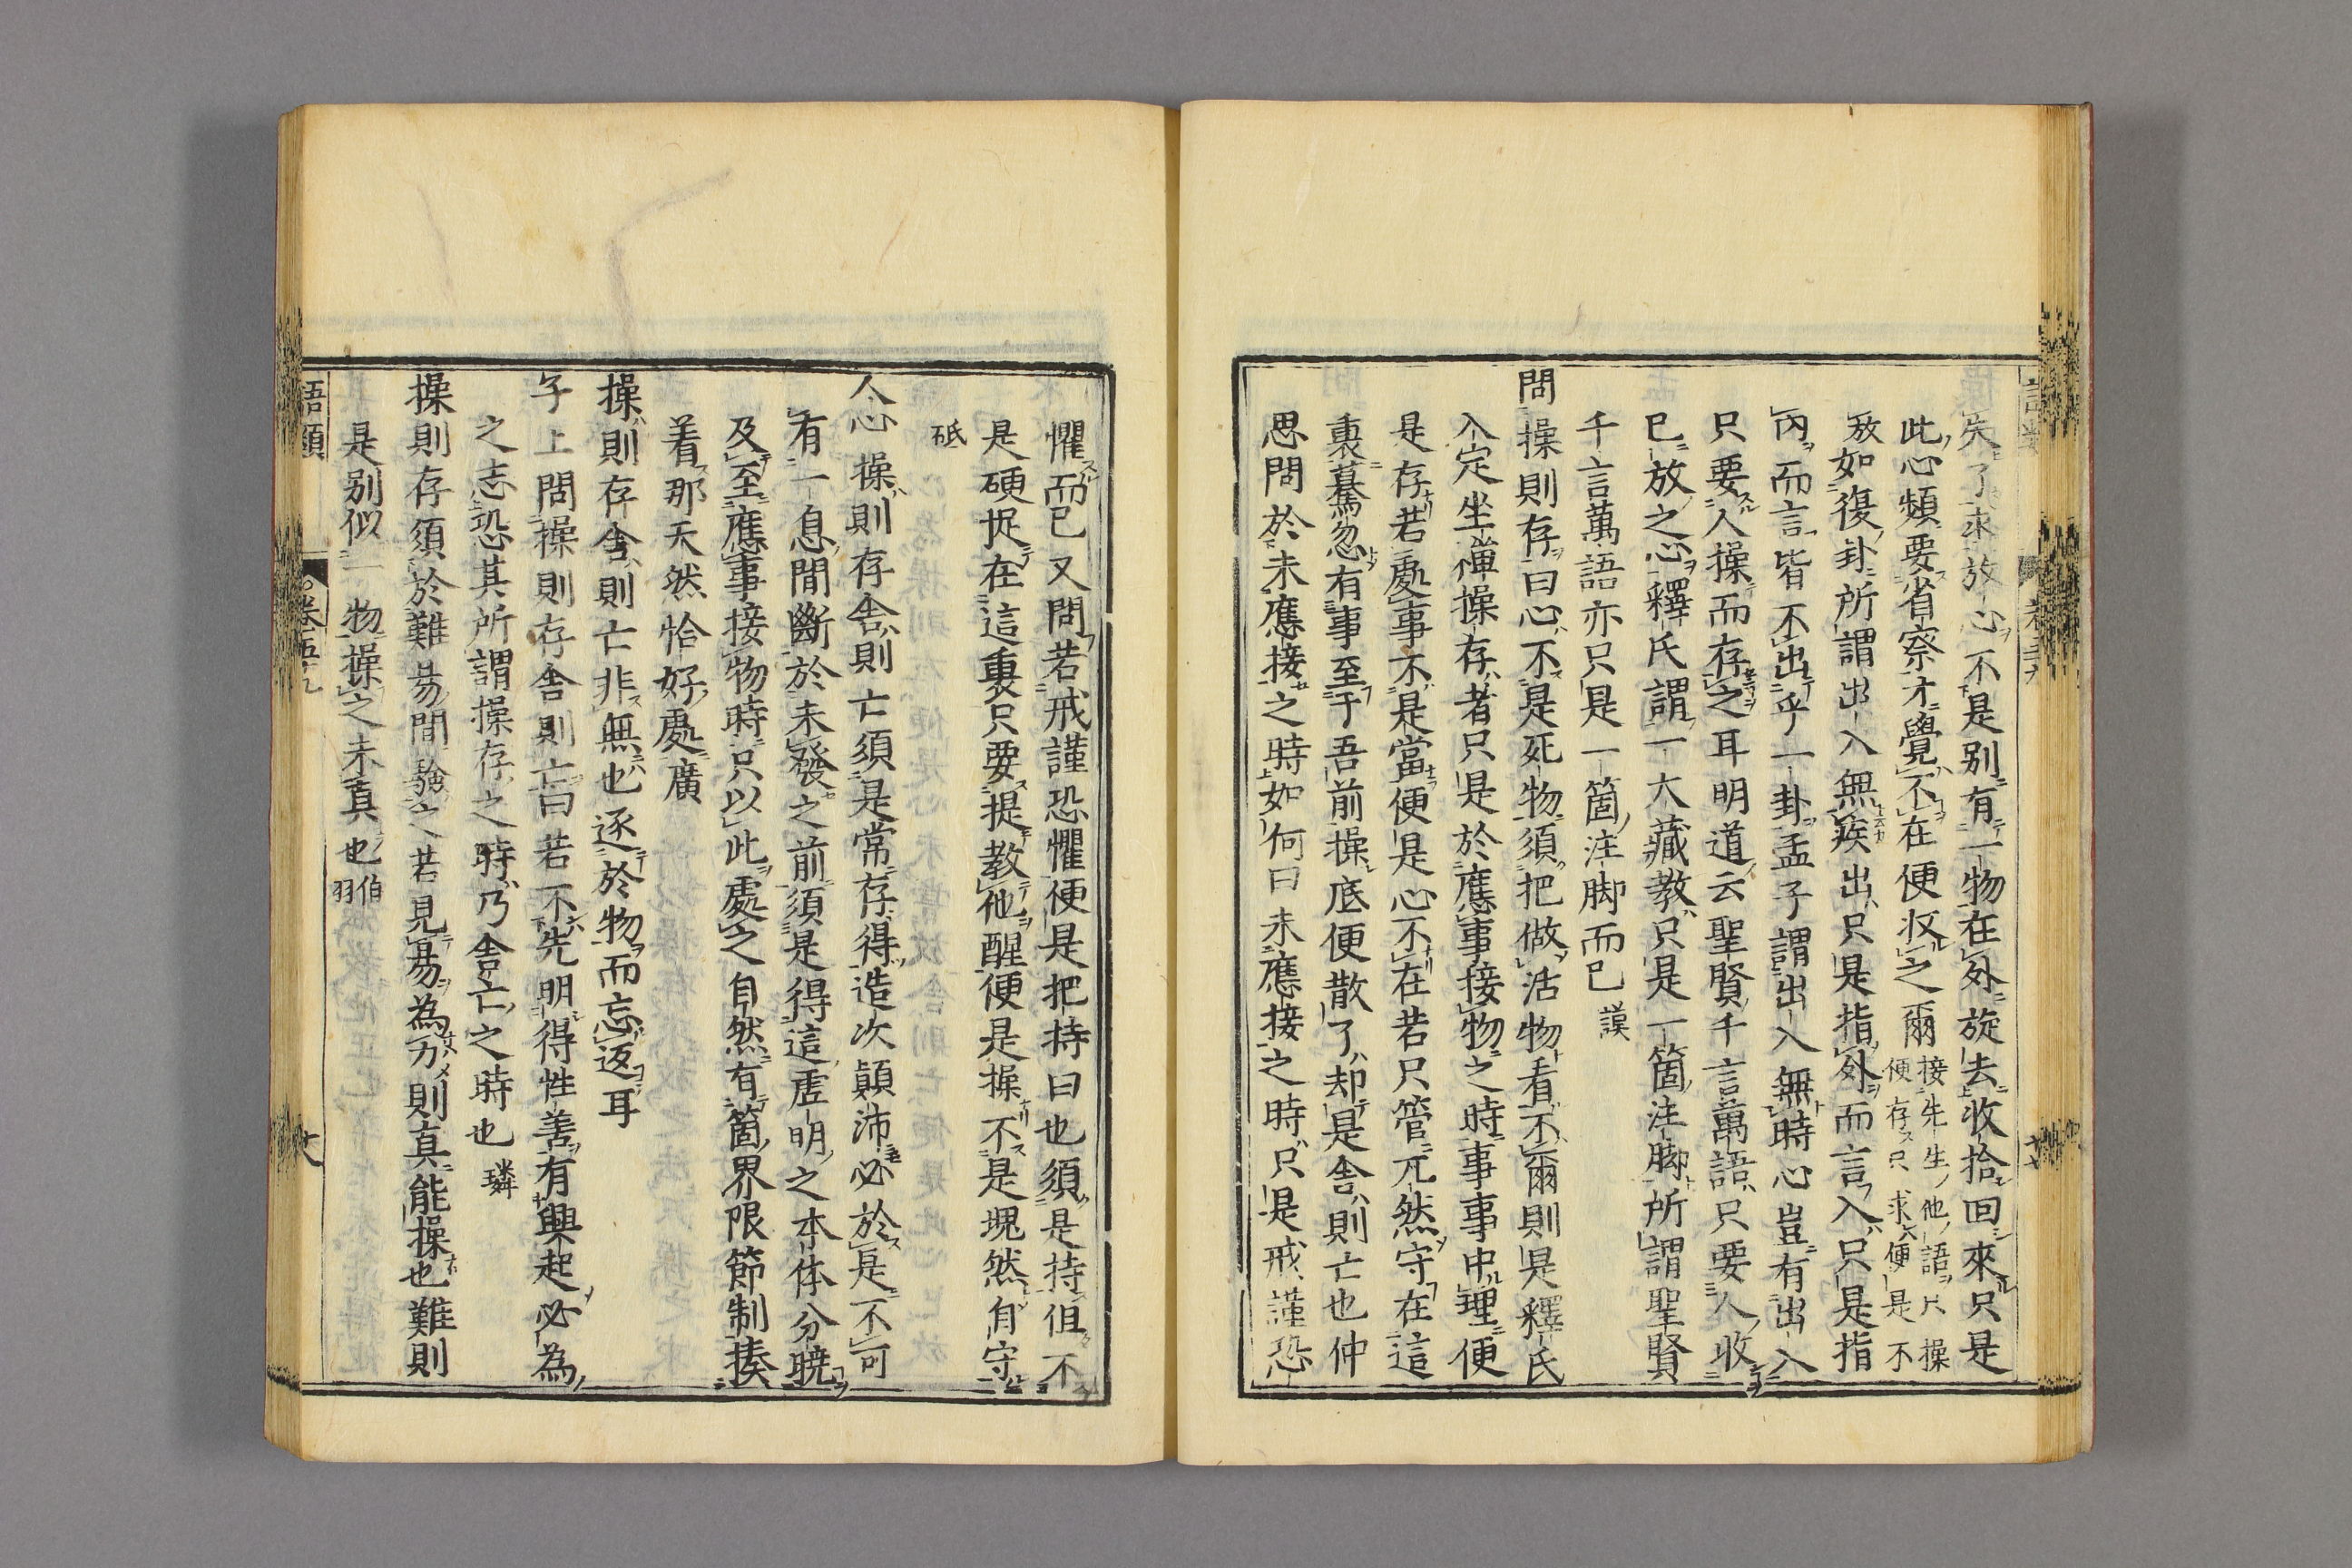 失了求放心不是别有一物在外旋去收拾回來只是
此心頻要省察才覺不在便収之爾接先生他語只操
便存只求便是不
放如復卦所謂出入無疾出只是指外而言入只是指
内而言皆不出乎一卦孟子謂出入無時心豈有出入
只要人操而存之耳明道云聖賢千言萬語只要人收
已放之心釋氏謂一大藏教只是一箇注脚所謂聖賢
千言萬語亦只是一箇注脚而已謨
問操則存曰心不是死物須把做活物看不爾則是釋氏
入定坐禪操存者只是於應事接物之時事事中理便
是存若處事不是當便是心不在若只管兀然守在這
裏驀忽有事至于吾前操底便散了却是舍則亡也仲
思問於未應接之時如何曰未應接之時只是戒謹恐
懼而已又問若戒謹恐懼便是把持曰也須是持但不
是硬捉在這裏只要提教他醒便是操不是塊然自守
砥
人心操則存舍則亡須是常存得造次顛沛必於是不可
有一息間斷於未發之前須是得這虛明之本体分曉
及至應事接物時只以此處之自然有箇界限節制揍
着那天然恰好處廣
操則存舍則亡非無也逐於物而忘返耳
子上問操則存舍則亡曰若不先明得性善有興起必為
之志恐其所謂操存之時乃舍亡之時也璘
操則存須於難易間驗之若見易為力則真能操也難則
是别似一物操之未真也伯羽
語類
卷五十九